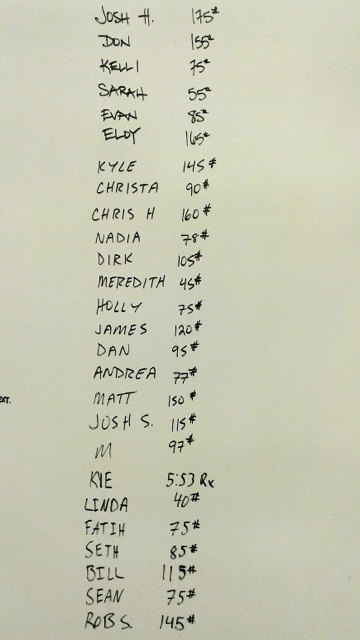 JOSH H. 175#
DON 155#
KELLI 75#
SARAH 55#
EVAN 85#
ELOY 165#
KYLE 145#
CHRISTA 90#
CHRIS H 160#
NADIA 78#
DIRK 105#
MEREDITH 45#
HOLLY 75#
JAMES 120#
DAN 95#
ANDREA 77#
MATT 150#
JOSH S. 115#
M 97#
5:53 Rx
LINDA 40#
FATIH 75#
SETH 85#
BILL 115#
SEAN 75#
ROB S. 145#